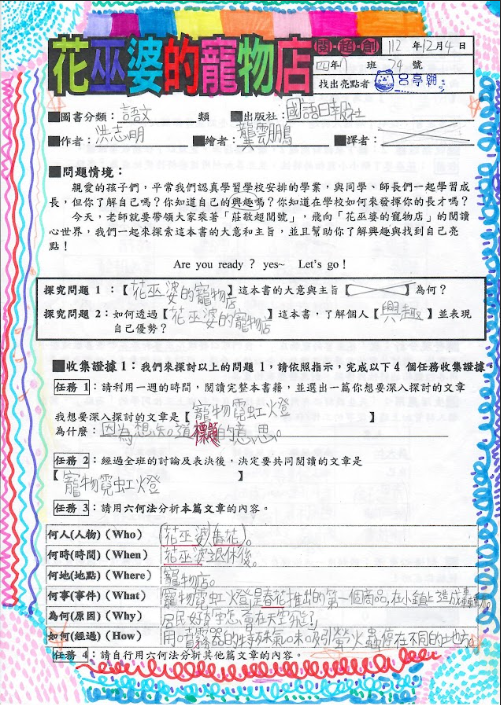 花巫婆的寵物店
112年12月4日
四年 班 24號
找出亮點者
■圖書分類：語文 類 ■出版社：國語日報社
■作者：洪志明 ■繪者：龔雲鵬 ■譯者：
■問題情境：
親愛的孩子們，平常我們認真學習學校安排的學業，與同學、師長們一起學習成
長，但你了解自己嗎？你知道自己的興趣嗎？你知道在學校如何來發揮你的長才嗎？
今天，老師就要帶領大家乘著「莊敬超閱號」，飛向「花巫婆的寵物店」的閱讀
心世界，我們一起來探索這本書的大意和主旨，並且幫助你了解興趣與找到自己亮
點！
Are you ready？ yes~ Let's go！
探究問題 1：【花巫婆的寵物店】這本書的大意與主旨【 】為何？
探究問題 2：如何透過【花巫婆的寵物店】這本書，了解個人【興趣】並表現
自己優勢？
■收集證據 1：我們來探討以上的問題 1，請依照指示，完成以下 4 個任務收集證據
任務 1：請利用一週的時間，閱讀完整本書籍，並選出一篇你想要深入探討的文章
我想要深入探討的文章是【寵物霓虹燈】
為什麼：因為想知道標題的意思。
任務 2：經過全班的討論及表決後，決定要共同閱讀的文章是
【寵物霓虹燈】
任務 3：請用六何法分析本篇文章的內容。
何人(人物)（Who） 花巫婆(春花)。
何時(時間)（When） 花巫婆退休後。
何地(地點)（Where） 寵物店。
何事(事件)（What） 寵物霓虹燈是春花推出的第一個商品,在小鎮上造成
為何(原因)（Why） 居民好奇字怎會在天空飛?
如何(經過)（How） 用噴霧器的特殊氣味吸引螢火蟲停在不同的地方。
任務 4：請自行用六何法分析其他篇文章的內容。